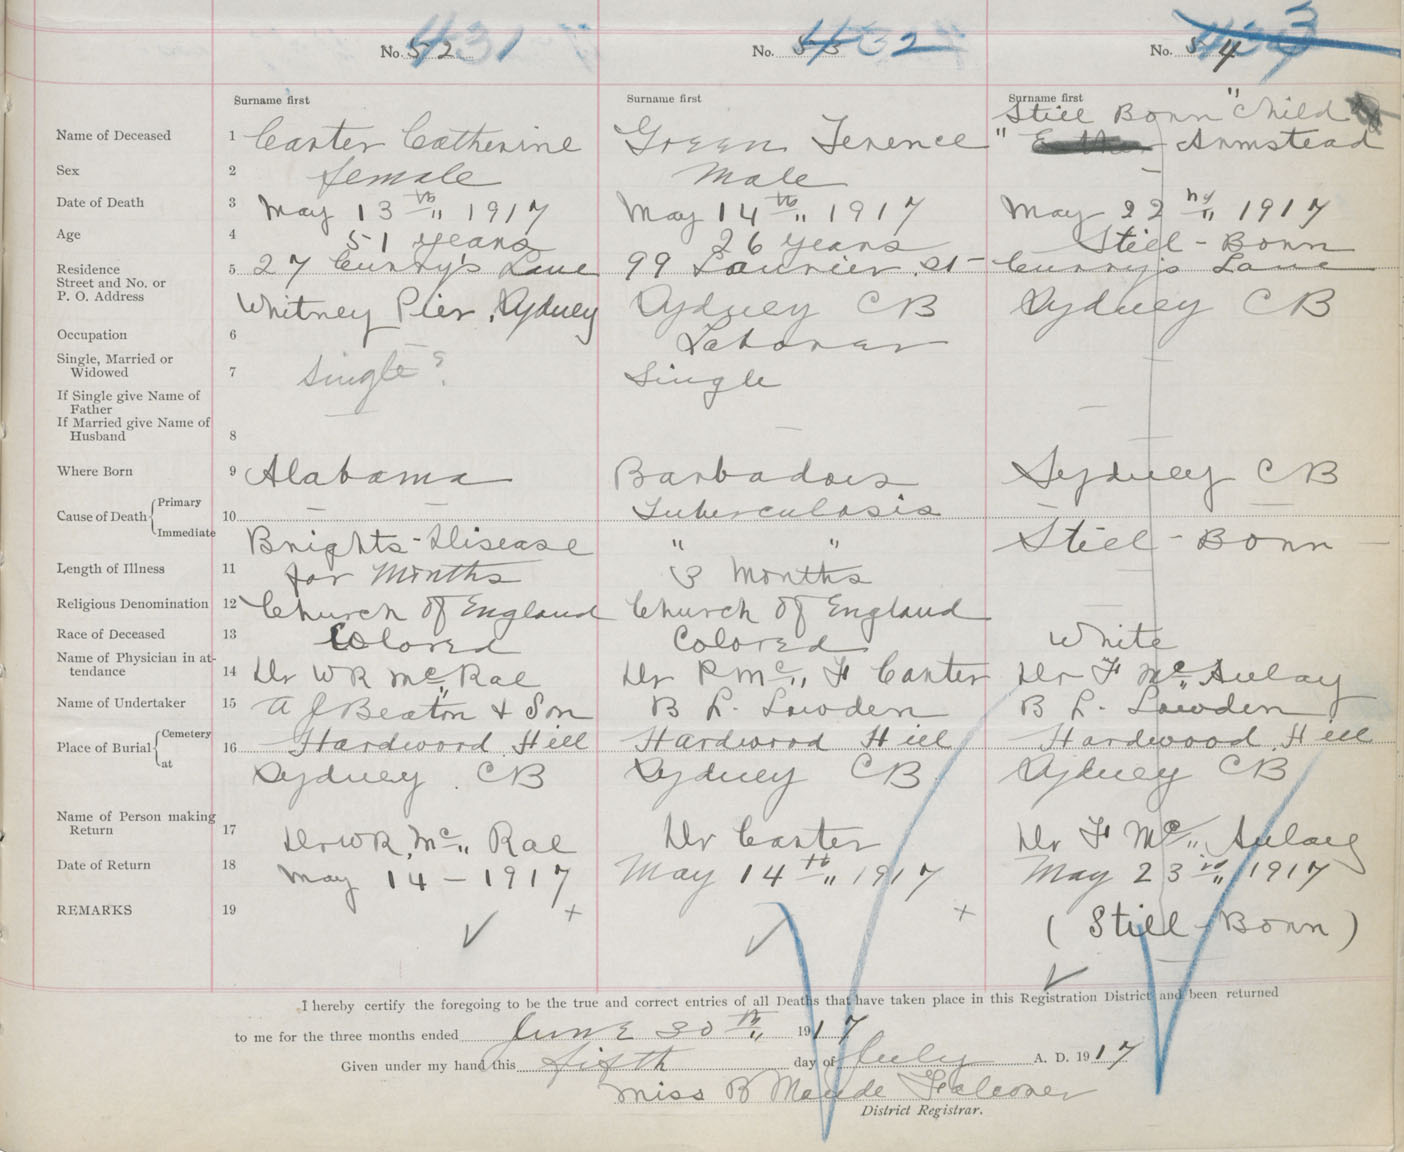 No. 52 431
No. 53 432
No. 54 433
Surname first
Surname first
Surname first
Name of Deceased 1 Carter Catherine
Green Terence
Still Born "Child
" Armstead
Sex 2 female
Male
—
Date of Death 3 May 13th 1917
May 14th 1917
May 22nd 1917
Age 4 51 years
26 years
Still-Born
Residence
Street and No. or
P. O. Address
5 27 Curry's Lane
Whitney Pier, Sydney
99 Laurier St
Sydney CB
Curry's Lane
Sydney CB
Occupation 6 —
Laborer
—
Single, Married or
Widowed
7 Single?
Single
If Single give Name of
Father
If Married give Name of
Husband
8 —
—
—
Where Born 9 Alabama
Barbadoes
Sydney CB
Cause of Death { Primary
Immediate
10 —
Brights-Disease
Tuberculosis
" "
—
Still-Born
Length of Illness 11 for Months
3 Months
—
Religious Denomination 12 Church of England
Church of England
—
Race of Deceased 13 Colored
Colored
White
Name of Physician in at-
tendance
14 Dr WR McRae
Dr R Mc F Carter
Dr F McAulay
Name of Undertaker 15 A J Beaton & Son
B L. Lowden
B L. Lowden
Place of Burial { Cemetery
at
16 Hardwood Hill
Sydney CB
Hardwood Hill
Sydney CB
Hardwood Hill
Sydney CB
Name of Person making
Return
17 Dr WR McRae
Dr Carter
Dr F McAulay
Date of Return 18 May 14 – 1917
May 14th 1917
May 23rd 1917
REMARKS 19
(Still-Born)
I hereby certify the foregoing to be the true and correct entries of all Deaths that have taken place in this Registration District and been returned
to me for the three months ended June 30th 1917
Given under my hand this fifth day of July A. D. 1917
Miss B Maude Falconer
District Registrar.